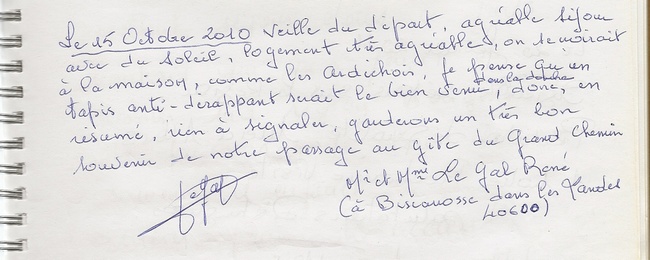 Le 15 Octobre 2010 Veille du départ, agréable séjour
avec du soleil, logement très agréable, on se voirait
à la maison, comme les ardichois, je pense qu'un
tapis anti-dérappant serait le bien venu, dans la douche donc, en
résumé, rien à signaler, garderons un très bon
souvenir de notre passage au gîte du Grand Chemin
Mr et Mme Le Gal René
(à Biscarosse dans les Landes
40600)
Le Gal